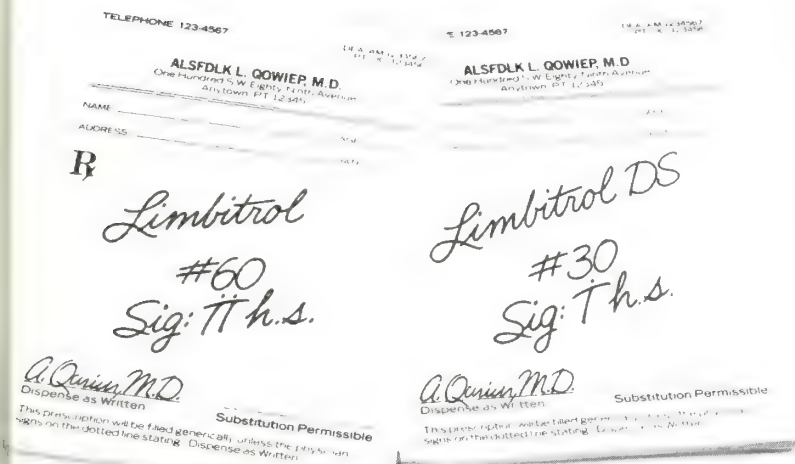 TELEPHONE 123-4567
ALSFDLK L. QOWIEP, M.D.
One Hundred S.W. Eighty Ninth Avenue
Anytown PT 12345
NAME
ADDRESS
Rx
Limbitrol
#60
Sig: īī h.s.
A. Qurius, M.D.
Dispense as Written
Substitution Permissible
This prescription will be filled generically unless the physician
signs on the dotted line stating Dispense as Written
E 123-4567
ALSFDLK L. QOWIEP, M.D.
One Hundred S.W. Eighty Ninth Avenue
Anytown PT 12345
Limbitrol DS
#30
Sig: ī h.s.
A. Qurius, M.D.
Dispense as Written
Substitution Permissible
This prescription will be filled
signs on the dotted line stating